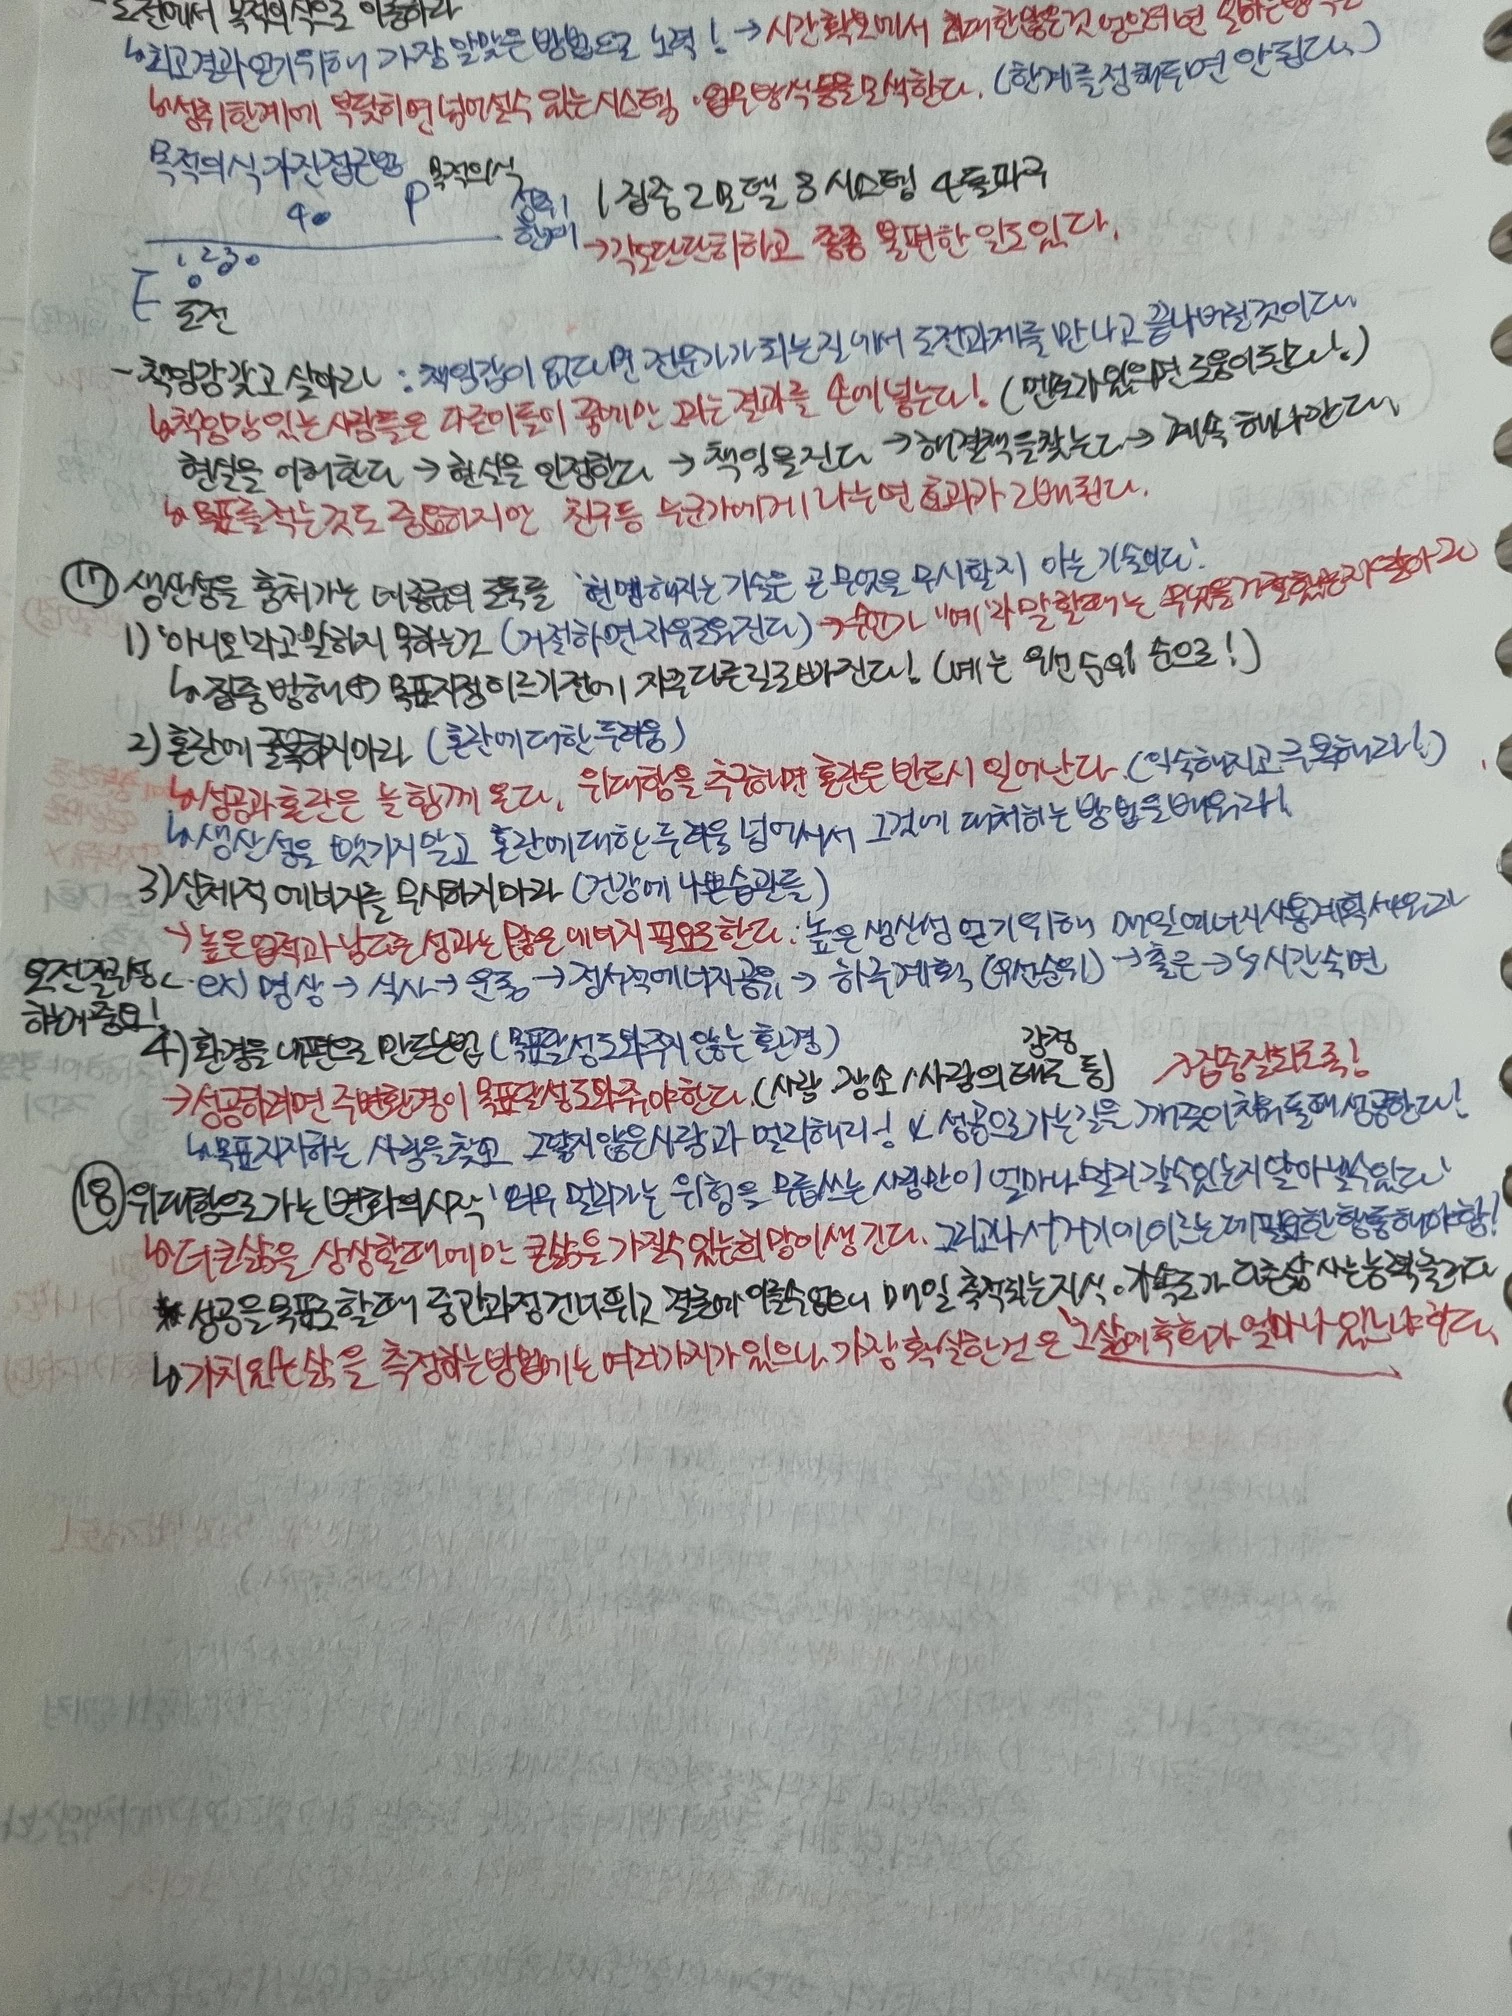 도전에서 목적의식으로 이동하라
↳최고결과 얻기위해 가장 알맞은 방법으로 노력! →시간확보에서 최대한 많은것 얻으려면 일하는방식은
↳성취한계에 부딪히면 넘어설수 있는 시스템·업무방식 등을 모색한다. (한계를 정해두면 안된다.)
목적의식 가진 접근법 P 목적의식
4 성취한계 1 집중 2 모델 3 시스템 4 돌파구
→각오단단히하고 종종 불편한 일도있다.
1 2 3
E 도전
- 책임감 갖고 살아라 : 책임감이 없다면 전문가가 되는길에서 도전과제를 만나고 끝나버릴것이다.
↳책임감 있는 사람들은 다른이들이 꿈에만 그리는 결과를 손에 넣는다! (멘토가있으면 도움이된다!)
현실을 이해한다 → 현실을 인정한다 → 책임을 진다 → 해결책을찾는다 → 계속 해나간다.
↳목표를 적는것도 중요하지만 친구등 누군가에게 나누면 효과가 2배된다.
⑰ 생산성을 훔쳐가는 네종류의 도둑들 '현명해지는 기술은 곧 무엇을 무시할지 아는 기술이다'
1) '아니오'라고 말하지 못하는것 (거절하면 자유로워진다) → 누군가 "예"라 말할때는 무엇을 거절했는지 알아라
↳집중 방해 목표지점 이르기전에 자주 다른길로 빠진다! (예는 우선순위 순으로!)
2) 혼란에 굴복하지마라 (혼란에 대한 두려움)
↳성공과 혼란은 늘 함께 온다. 위대함을 추구하면 혼란은 반드시 일어난다. (익숙해지고 극복해라!)
↳생산성을 뺏기지말고 혼란에대한 두려움 넘어서서 그것에 대처하는 방법을 배워라!
3) 신체적 에너지를 무시하지마라 (건강에 나쁜습관들)
→ 높은업적과 남다른 성과는 많은 에너지 필요로한다. 높은 생산성 얻기위해 매일에너지사용계획 세워라
오전 잘활용하는게 중요! ex) 명상 → 식사 → 운동 → 정서적에너지공유 → 하루계획 (우선순위) → 출근 → 8시간숙면
4) 환경을 내편으로 만드는법 (목표달성 도와주지 않는 환경)
→성공하려면 주변환경이 목표달성 도와주야한다. (사람, 장소 / 사람의 태도 감정 등) →집중 잘되도록!
↳목표지지하는 사람을 찾고 그렇지 않은사람과 멀리해라! & 성공으로가는길을 깨끗이치워둘때 성공한다!
⑱ 위대함으로 가는 변화의 시작 '너무 멀리가는 위험을 무릅쓰는 사람만이 얼마나 멀리 갈수있는지 알아낼수있다'
↳더 큰삶을 상상할때에만 큰삶을 가질수 있는희망이 생긴다. 그리고나서 거기에 이르는데 필요한 행동해야함!
* 성공을 목표로 할때 중간과정 건너뛰고 결론에 이를수없으니 매일 축적되는지식·가속도가 다른삶 사는능력을준다
↳가치있는삶을 측정하는방법에는 여러가지가 있으나, 가장 확실한건은 '그삶에 후회가 얼마나 있느냐한다.